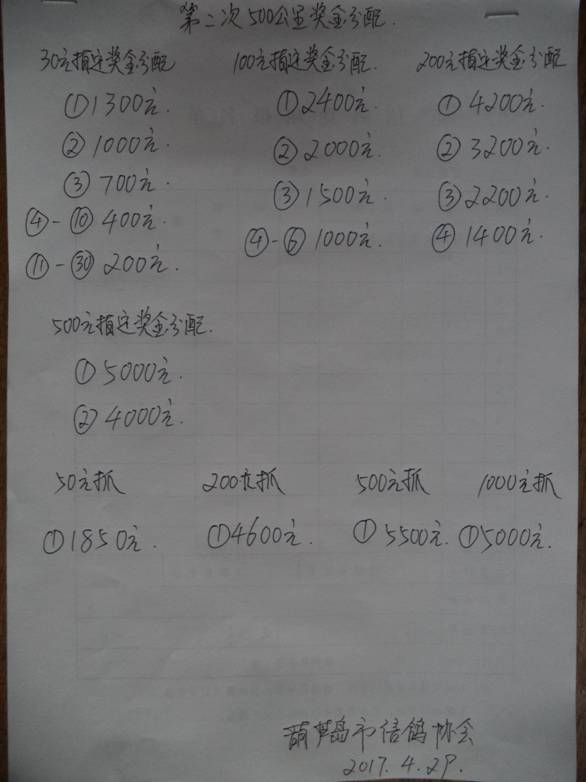 第二次500公里奖金分配.
30元指定奖金分配 100元指定奖金分配. 200元指定奖金分配
①1300元. ①2400元. ① 4200元.
② 1000元. ② 2000元. ② 3200元.
③ 700元. ③ 1500元. ③ 2200元.
④-⑩ 400元. ④-⑥ 1000元. ④ 1400元.
⑪-㉚ 200元.
500元指定奖金分配.
① 5000元.
② 4000元.
50元抓 200元抓 500元抓 1000元抓
①1850元. ①4600元. ① 5500元. ①5000元.
葫芦岛市信鸽协会
2017.4.29.